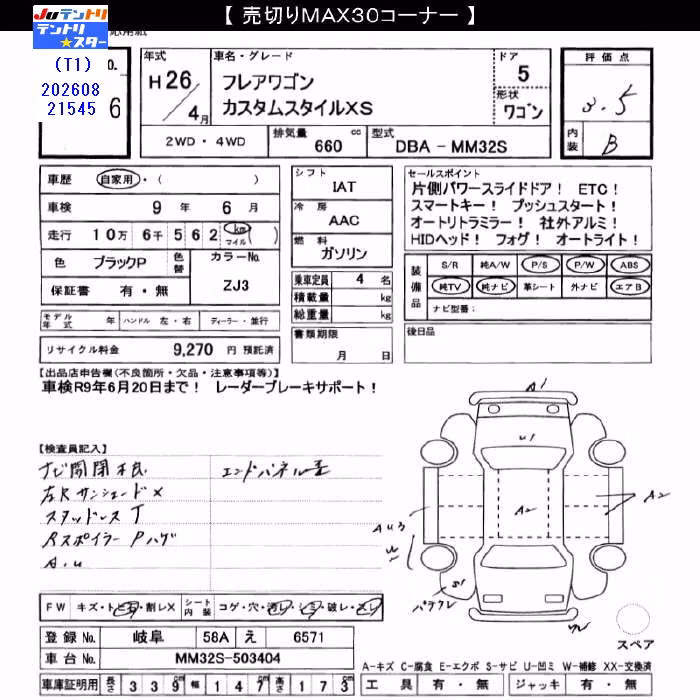 【 売切りMAX30コーナー 】
JUテントリ
テントリ★スター
(T1)
202608
21545
No.
6
年式
H26/4月
車名・グレード
フレアワゴン
カスタムスタイルXS
ドア
5
形状
ワゴン
評価点
3.5
内装
B
2WD・4WD
排気量 660 cc
型式 DBA - MM32S
車歴 自家用・( )
車検 9年 6月
走行 10万 6千 5 6 2 km マイル ( )
色 ブラックP
色替
カラーNo. ZJ3
保証書 有・無
シフト
IAT
冷房
AAC
燃料
ガソリン
乗車定員 4 名
積載量 kg
総重量 kg
セールスポイント
片側パワースライドドア! ETC!
スマートキー! プッシュスタート!
オートリトラミラー! 社外アルミ!
HIDヘッド! フォグ! オートライト!
装備品
S/R 純A/W P/S P/W ABS
純TV 純ナビ 革シート 外ナビ エアB
ナビ型番:
モデル年式 年 ハンドル 左・右 ディーラー・並行
リサイクル料金 9,270 円 預託済
書類期限
月 日
後日品
【出品店申告欄(不良箇所・欠品・注意事項等)】
車検R9年6月20日まで! レーダーブレーキサポート!
【検査員記入】
ナビ開閉不良
エンドパネル歪
左Rサンシェード×
スタッドレスT
Rスポイラー Pハゲ
A.U
A1
U1
A2
A2
AU3
W
S1
パテクレ
FW キズ・トビ石・割レX
シート内装 コゲ・穴・汚レ・シミ・破レ・スレ
登録No. 岐阜 58A え 6571
車台No. MM32S-503404
スペア
A-キズ C-腐食 E-エクボ S-サビ U-凹ミ W-補修 XX-交換済
車庫証明用 長さ 339cm 幅 147cm 高さ 173cm
工具 有・無 ジャッキ 有・無